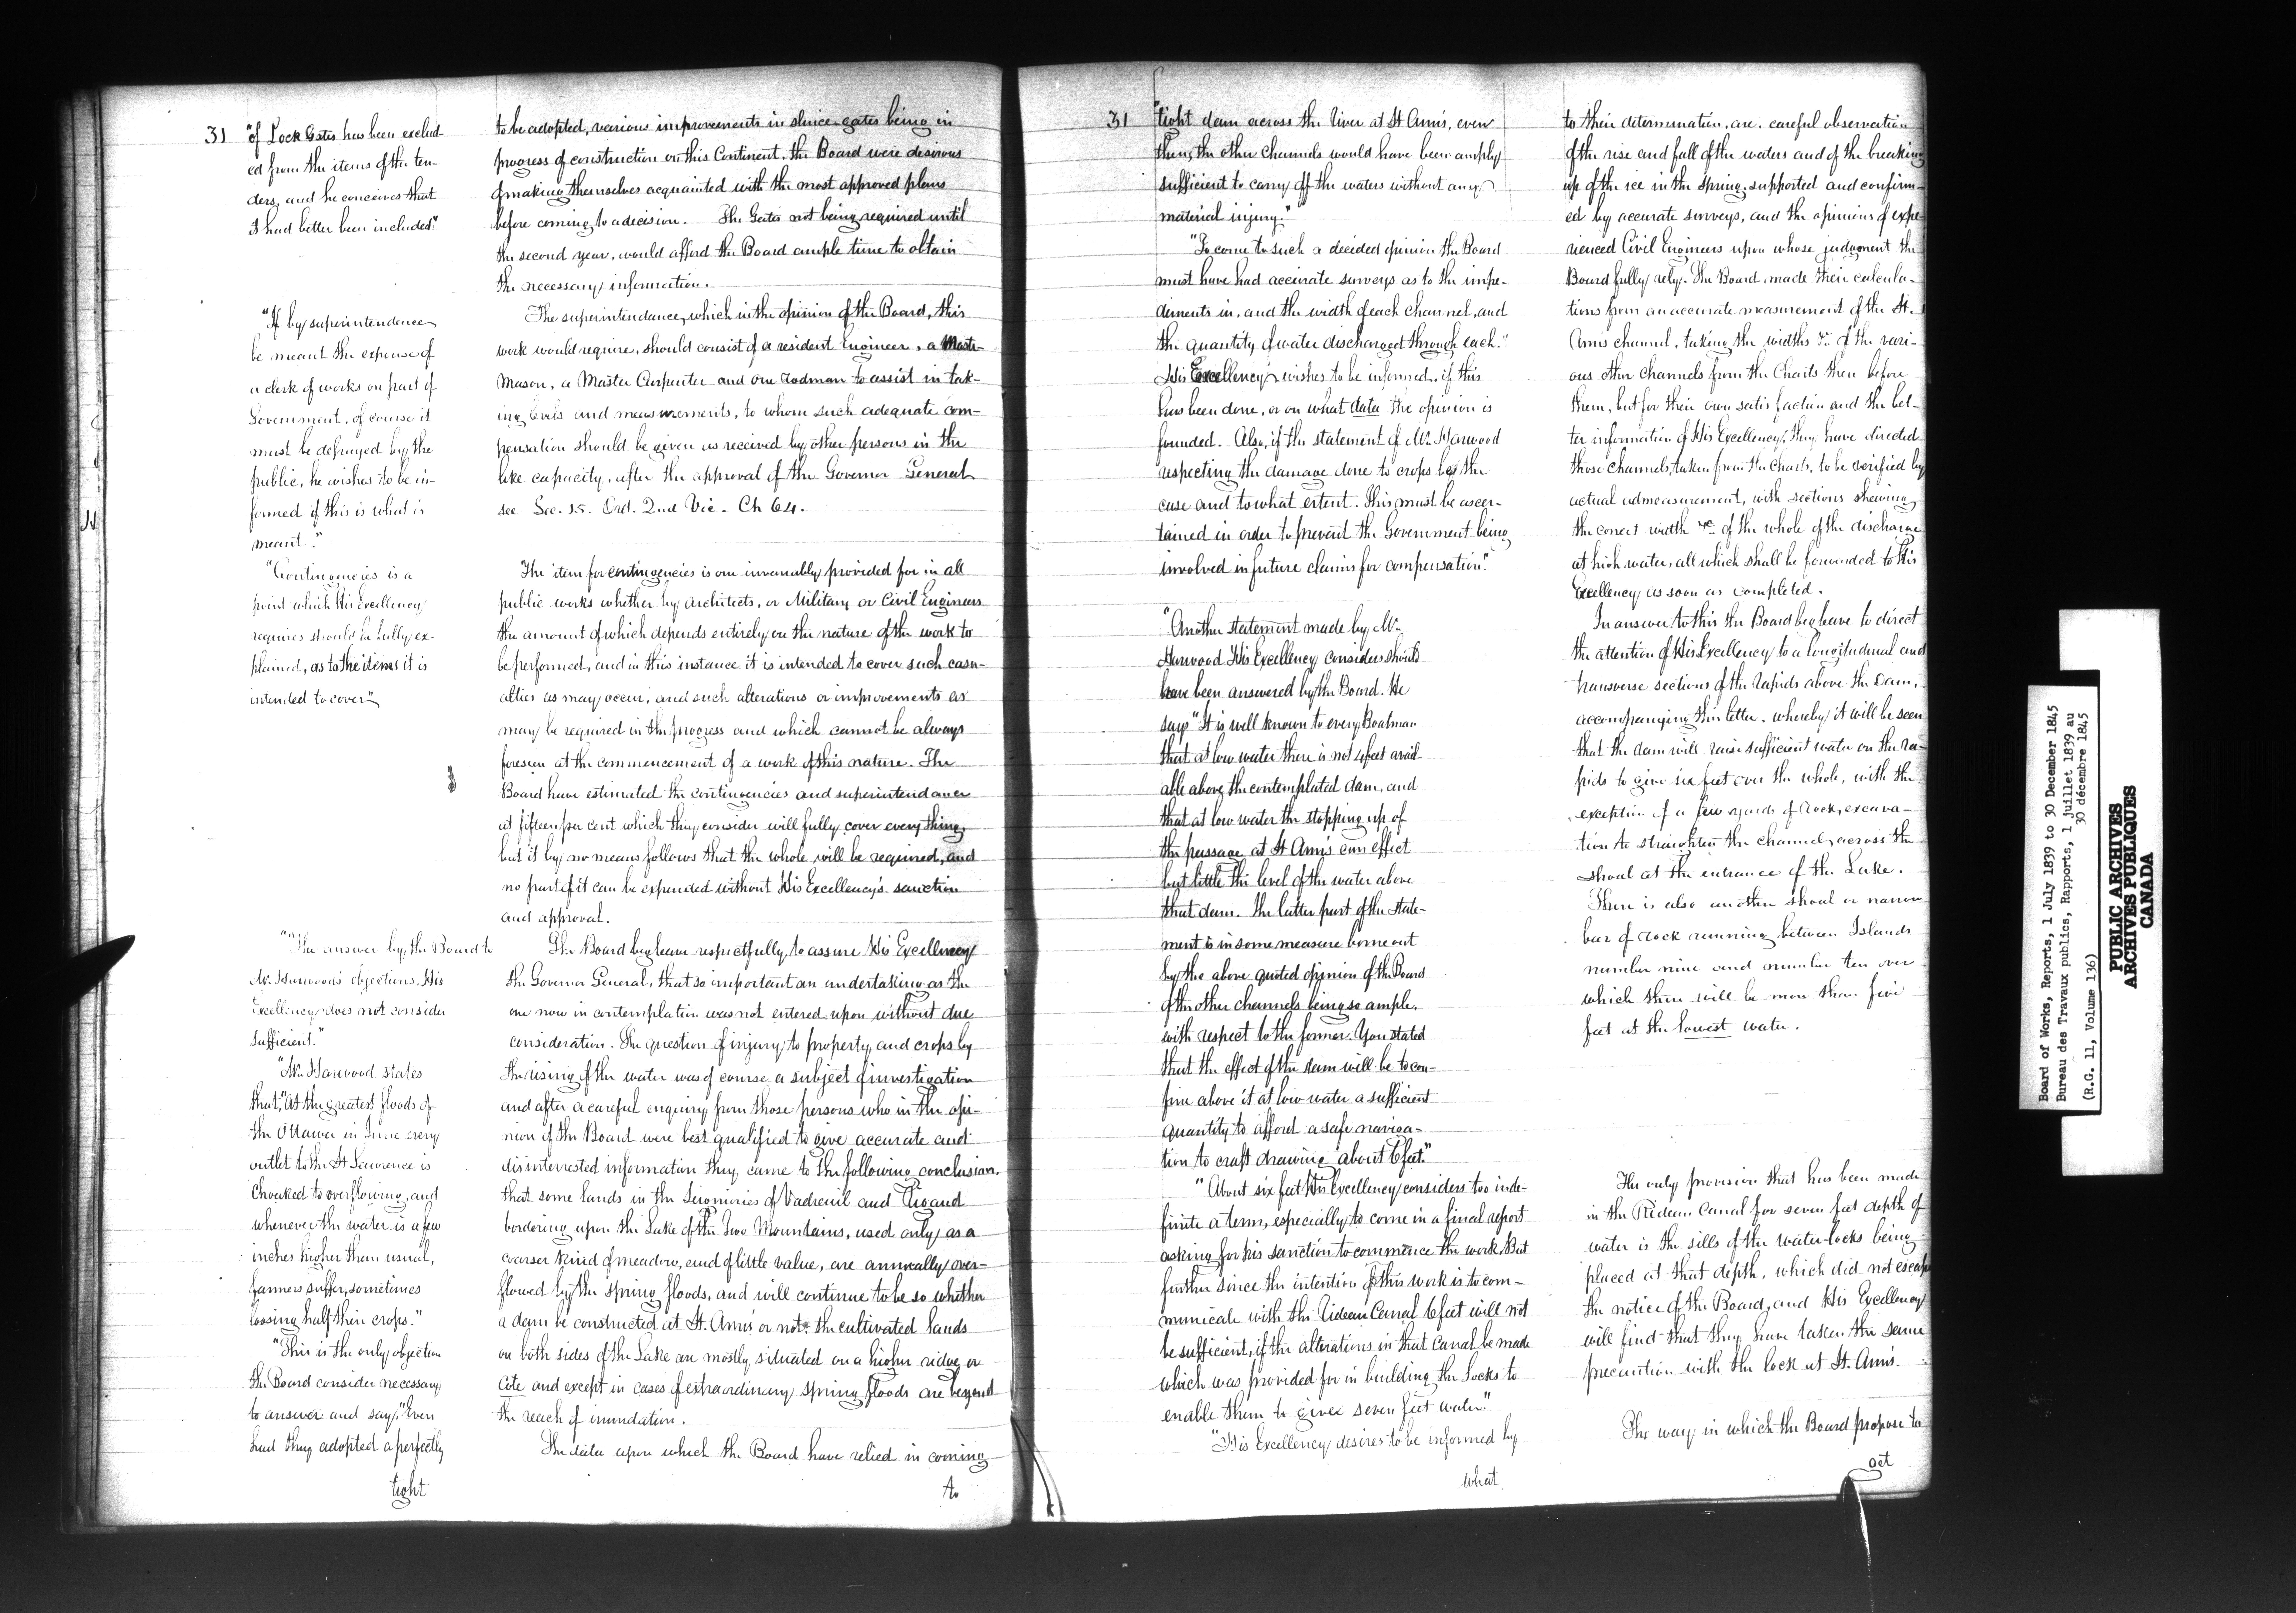 31
"of Lock Gates has been exclud-
ed from the items of the ten-
ders, and he conceives that
I had better been included."
"If by superintendence
be meant the expense of
a clerk of works on part of
Government, of course it
must be defrayed by the
public, he wishes to be in-
formed if this is what is
meant."
"Contingencies is a
point which His Excellency
requires should be fully ex-
plained, as to the items it is
intended to cover"
""The answer by the Board to
Mr. Harwood's objections, His
Excellency does not consider
sufficient."
"Mr. Harwood states
that, "at the greatest floods of
the Ottawa in June every
outlet to the St Lawrence is
choaked to overflowing, and
whenever the water is a few
inches higher than usual,
farmers suffer, sometimes
loosing half their crops."
"This is the only objection
the Board consider necessary
to answer and say, "Even
had they adopted a perfectly
tight
to be adopted, various improvements in sluice gates being in
progress of construction on this Continent, the Board were desirous
of making themselves acquainted with the most approved plans
before coming to a decision. The Gates not being required until
the second year, would afford the Board ample time to obtain
the necessary information.
The superintendance, which in the opinion of the Board, this
work would require, should consist of a resident Engineer, a Master
Mason, a Master Carpenter and one rodman to assist in tak-
ing levels and measurements, to whom such adequate com-
pensation should be given as received by other persons in the
like capacity, after the approval of the Governor General
see Sec. 15. Ord. 2nd Vic. Ch 64.
"The item for contingencies is one invariably provided for in all
public works whether by Architects, or Military or Civil Engineers
the amount of which depends entirely on the nature of the work to
be performed, and in this instance it is intended to cover such casu-
alties as may occur, and such alterations or improvements as
may be required in the progress and which cannot be always
foreseen at the commencement of a work of this nature. The
Board have estimated the contingencies and superintendance
at fifteen per cent which they consider will fully cover every thing,
but it by no means follows that the whole will be required, and
no part of it can be expended without His Excellency's sanction
and approval.
The Board beg leave respectfully, to assure His Excellency
the Governor General, that so important an undertaking as the
one now in contemplation was not entered upon without due
consideration. The question of injury to property and crops by
the rising of the water was of course a subject of investigation
and after a careful enquiry from those persons who in the opi-
nion of the Board were best qualified to give accurate and
disinterested information they came to the following conclusion,
that some lands in the Seigniories of Vadreuil and Rigaud
bordering upon the Lake of the Two Mountains, used only as a
coarser kind of meadow, and of little value, are annually over-
flowed by the spring floods, and will continue to be so whether
a dam be constructed at St. Ann's or not. the cultivated lands
on both sides of the Lake are mostly situated on a higher ridge or
Cote and except in cases of extraordinary spring floods are beyond
the reach of inundation.
The data upon which the Board have relied in coming
to
31
"tight dam across the River at St Ann's, even
then, the other channels would have been amply
sufficient to carry off the waters without any
material injury."
"To come to such a decided opinion the Board
must have had accurate surveys as to the impe-
diments in, and the width of each channel, and
the quantity of water discharged through each."
His Excellency wishes to be informed, if this
has been done, or on what data the opinion is
founded. Also, if the statement of Mr. Harwood
respecting the damage done to crops be the
case and to what extent. This must be ascer-
tained in order to prevent the Government being
involved in future claims for compensation."
"Another statement made by Mr.
Harwood His Excellency considers should
have been answered by the Board. He
says "It is well known to every Boatman
that at low water there is not 4 feet avail-
able above the contemplated dam, and
that at low water the stopping up of
the passage at St Ann's can effect
but little the level of the water above
that dam. The latter part of the state-
ment is in some measure borne out
by the above quoted opinion of the Board
of the other channels being so ample,
with respect to the former. You stated
that the effect of the dam will be to con-
fine above it at low water a sufficient
quantity to afford a safe naviga-
tion to craft drawing about 6 feet."
"About six feet His Excellency considers too inde-
finite a term, especially to come in a final report
asking for his sanction to commence the work. But
further since the intention of this work is to com-
municate with the Rideau Canal 6 feet will not
be sufficient, if the alterations in that Canal be made
which was provided for in building the Locks to
enable them to give seven feet water."
"His Excellency desires to be informed by
what
to their determination, are, careful observation
of the rise and fall of the waters and of the breaking
up of the ice in the spring, supported and confirm-
ed by accurate surveys, and the opinions of expe-
rienced Civil Engineers upon whose judgment the
Board fully rely. The Board made their calcula-
tions from an accurate measurement of the St.
Ann's channel, taking the widths &c. of the vari-
ous other channels from the Charts then before
them, but for their own satisfaction and the bet-
ter information of His Excellency, they have directed
those channels, taken from the Charts, to be verified by
actual admeasurement, with sections shewing
the correct width &c. of the whole of the discharge
at high water, all which shall be forwarded to His
Excellency as soon as completed.
In answer to this the Board beg leave to direct
the attention of His Excellency to a longitudinal and
transverse sections of the Rapids above the Dam,
accompanying this letter. whereby it will be seen
that the dam will raise sufficient water on the ra-
pids to give six feet over the whole, with the
exception of a few yards of rock, excava-
tion to straighten the channel, across the
shoal at the entrance of the Lake.
There is also another shoal or narrow
bar of rock running between Islands
number nine and number ten over
which there will be more than five
feet at the lowest water.
The only provision that has been made
in the Rideau Canal for seven feet depth of
water is the sills of the water-locks being
placed at that depth, which did not escape
the notice of the Board, and His Excellency
will find that they have taken the same
precaution with the lock at St. Ann's.
The way in which the Board propose to
get
Board of Works, Reports, 1 July 1839 to 30 December 1845
Bureau des Travaux publics, Rapports, 1 juillet 1839 au
30 décembre 1845
(R.G. 11, Volume 136)
PUBLIC ARCHIVES
ARCHIVES PUBLIQUES
CANADA